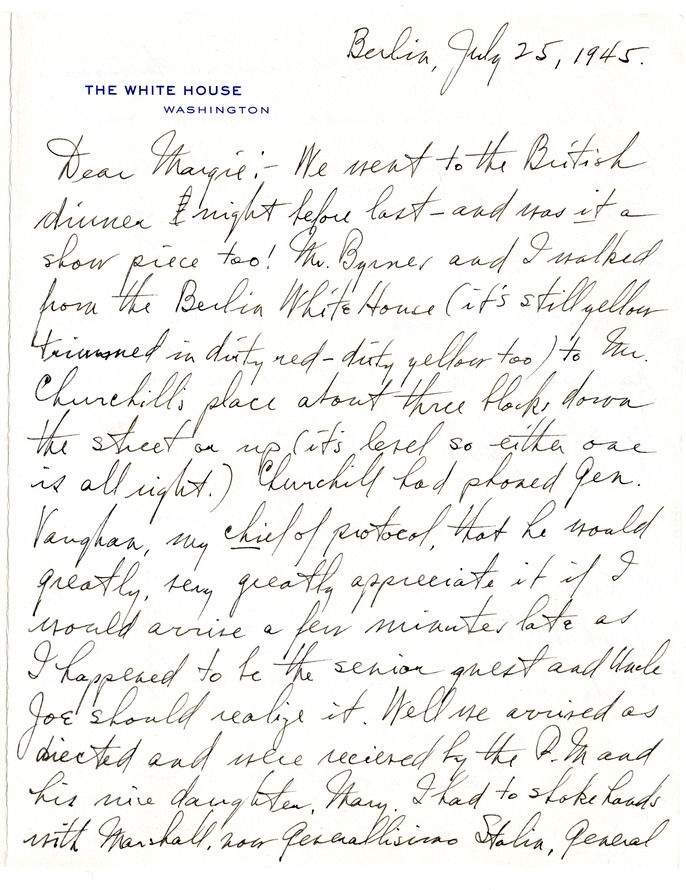 Berlin, July 25, 1945.
THE WHITE HOUSE
WASHINGTON
Dear Margie:- We went to the British
dinner night before last - and was it a
show piece too! Mr. Byrnes and I walked
from the Berlin White House (it's still yellow
trimmed in dirty red - dirty yellow too) to Mr.
Churchill's place about three blocks down
the street or up (it's level so either one
is all right.) Churchill had phoned Gen.
Vaughan, my chief of protocol, that he would
greatly, very greatly appreciate it if I
would arrive a few minutes late as
I happened to be the senior guest and Uncle
Joe should realize it. Well we arrived as
directed and were recieved by the P.M and
his nice daughter, Mary. I had to shake hands
with Marshall, now Generallisimo Stalin, General